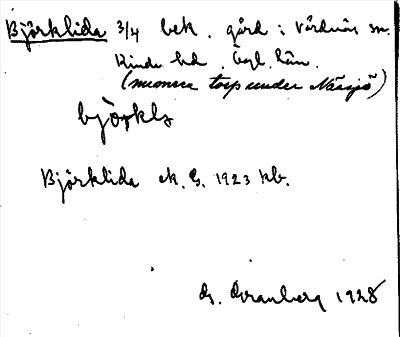 Björklida 3/4 bek. gård i Vårdnäs sn.
Kinda hd. Ögl. län.
(numera torp under Nässjö)
björkli
Björklida ek. G. 1923 kb.
G. Granberg 1928